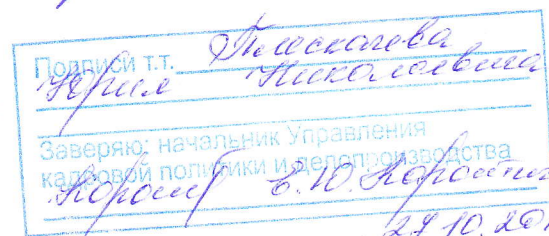 Подписи т.т. Плескачева
Юрия Николаевича
Заверяю: начальник Управления
кадровой политики и делопроизводства
Е.Ю.